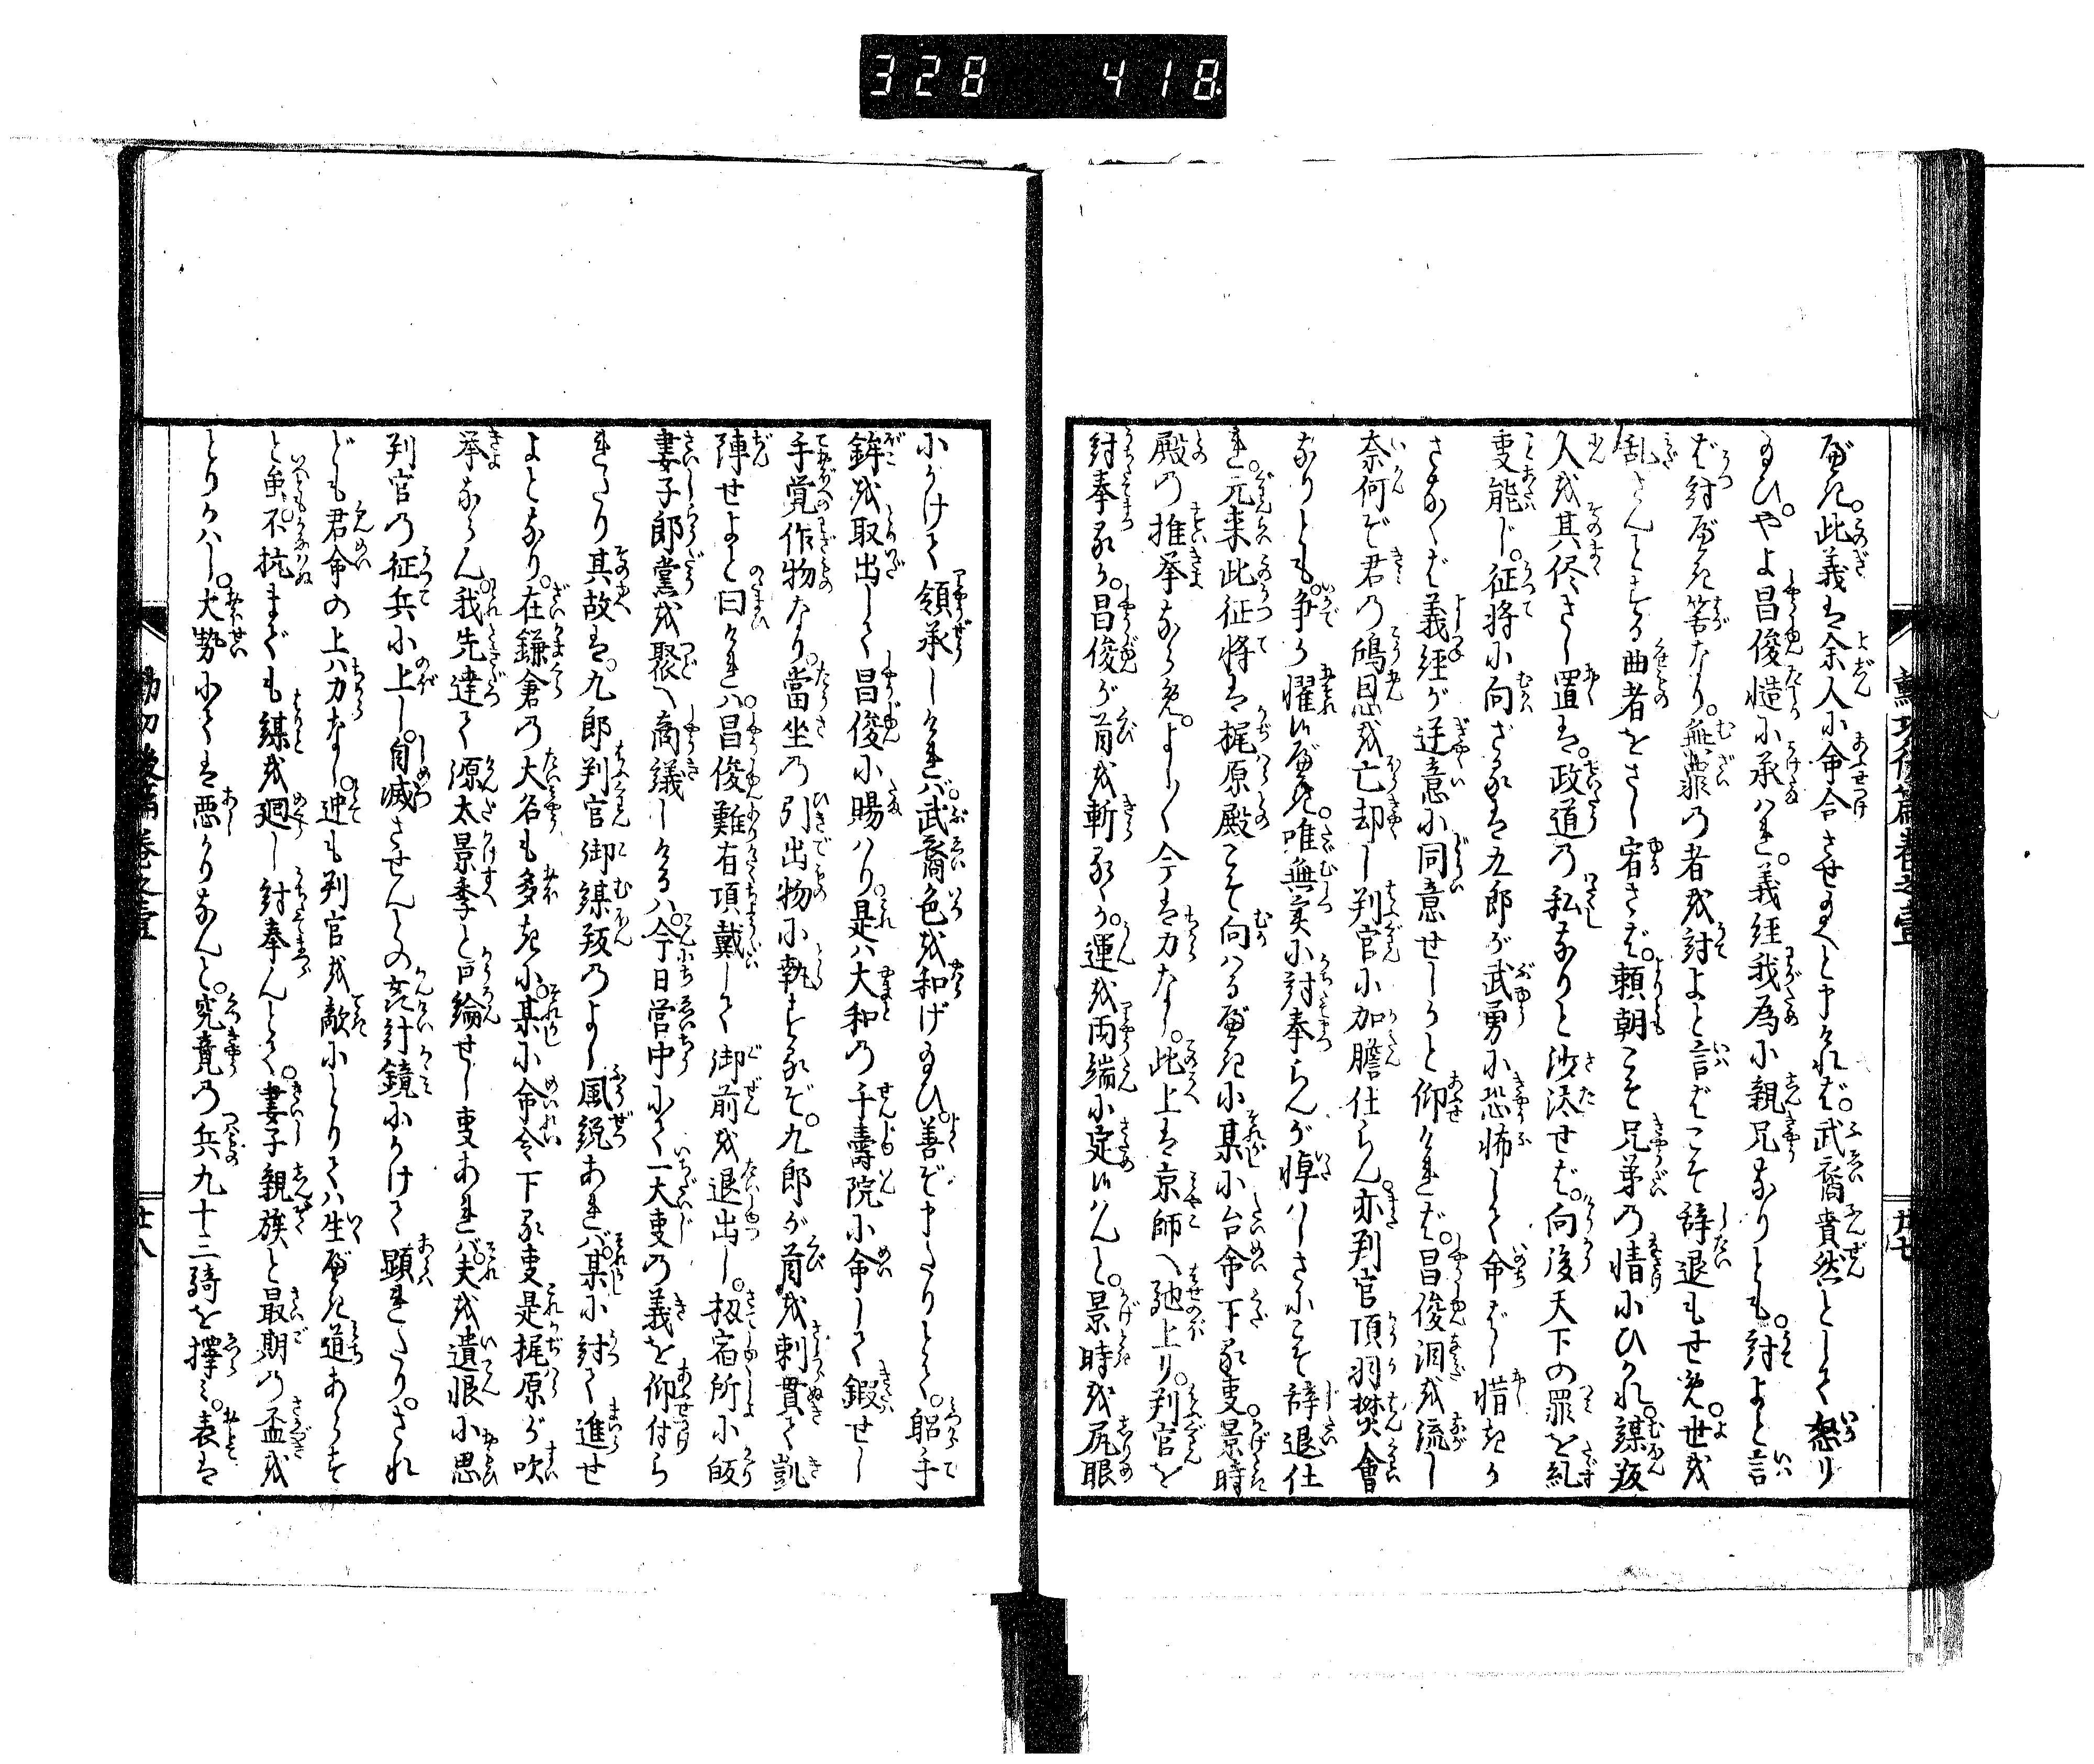 328 418
勲功後篇巻之壹
廿七
べき。此義は余人に命令させ給へと申ければ。武裔賁然としく怒り
給ひ。やよ昌俊慥に承はれ。義経我為に親兄なりとも。討よと言
ば討べき筈なり。無罪の者を討よと言ばこそ辞退もせめ。世を
乱さんとする曲者をさし宥さば。頼朝こそ兄弟の情にひかれ。謀叛
人を其侭さし置は。政道の私なりと沙汰せば。向後天下の罪を糺
事能じ。征将に向ざるは九郎が武勇に恐怖しく命ばし惜きか
さなくば義経が逆意に同意せしかと仰ければ。昌俊涙を流し
奈何ぞ君の鴻恩を亡却し判官に加膽仕らん。亦判官項羽樊會
なりとも。争か懼候べき。唯無実に討奉らんが悼はしさにこそ辞退仕
れ。元来此征将は梶原殿こそ向はるべきに某に台命下る事。景時
殿の推挙ならめ。よし〳〵今は力なし。此上は京師へ馳上り。判官を
討奉るか。昌俊が首を斬るゝか。運を両端に定候はんと。景時を尻眼
にかけて領承しければ。武裔色を和げ給ひ。善ぞ申たりとて。躬手
鉾を取出しく昌俊に賜はり。是は大和の千壽院に命しく鍜せし
手覚作物なり。當坐の引出物に執するぞ。九郎が首を刺貫て凱
陣せよと曰ければ。昌俊難有頂戴しく御前を退出し。扨宿所に皈
妻子郎黨を聚へ商議しけるは。今日営中にて一大事の義を仰付ら
れたり其故は。九郎判官御謀叛のよし風説あれば。某に討て進せ
よとなり。在鎌倉の大名も多きに。某に命令下る事是梶原が吹
挙ならん。我先達て源太景季と口論せし事あれば。夫を遺恨に思
判官の征兵に上し。自滅させんとの奸計鏡にかけて顕れたり。され
ども君命の上は力なし。迚も判官を敵にとりては生べき道あらず
と虽。不抗までも謀を廻し討奉んとて。妻子親族と最期の盃を
とりかはし。大勢にては悪かりなんと。究竟の兵九十三騎を擇ミ。表は
廿八